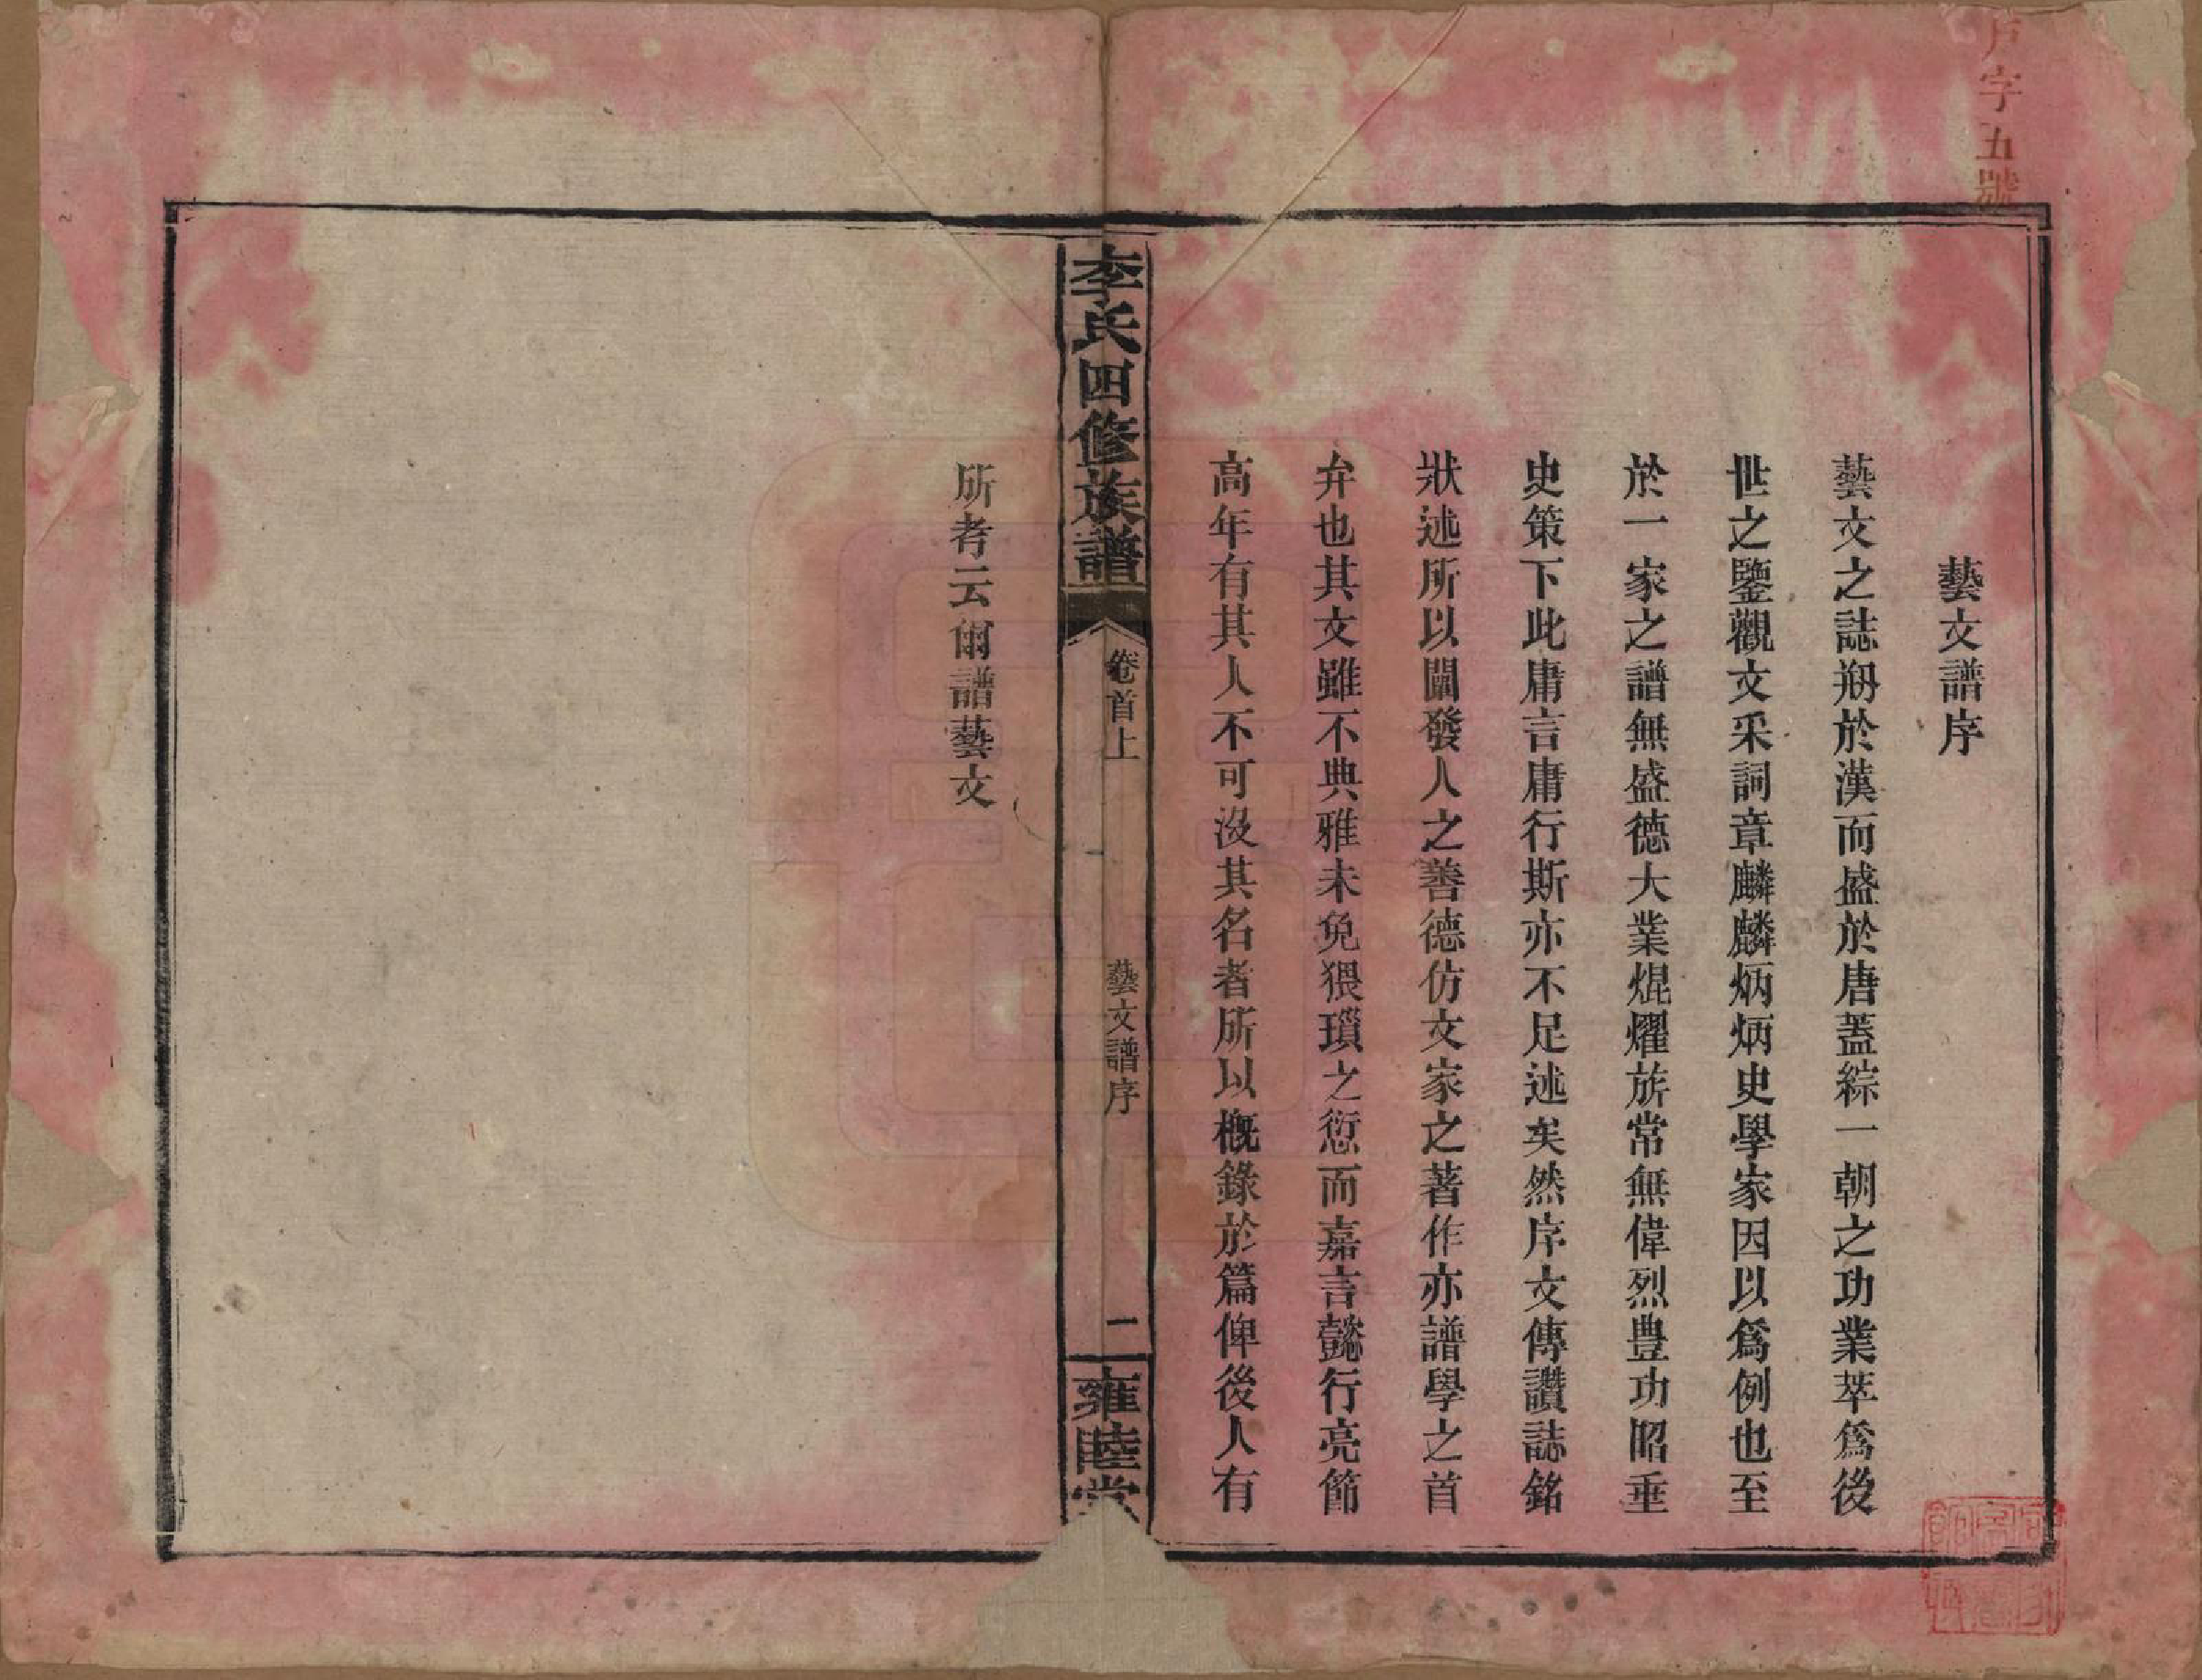 戸字五號
藝文譜序
藝文之誌刱於漢而盛於唐蓋綜一朝之功業萃爲後
世之鑒觀文采詞章麟麟炳炳史學家因以爲例也至
於一家之譜無盛德大業焜燿旂常無偉烈豐功昭垂
史策下此庸言庸行斯亦不足述矣然序文傳讚誌銘
狀述所以闡發人之善德仿文家之著作亦譜學之首
弁也其文雖不典雅未免猥瑣之愆而嘉言懿行亮節
高年有其人不可沒其名者所以概錄於篇俾後人有
李氏四修族譜
卷首上
藝文譜序
二
雍睦堂
所考云爾譜藝文